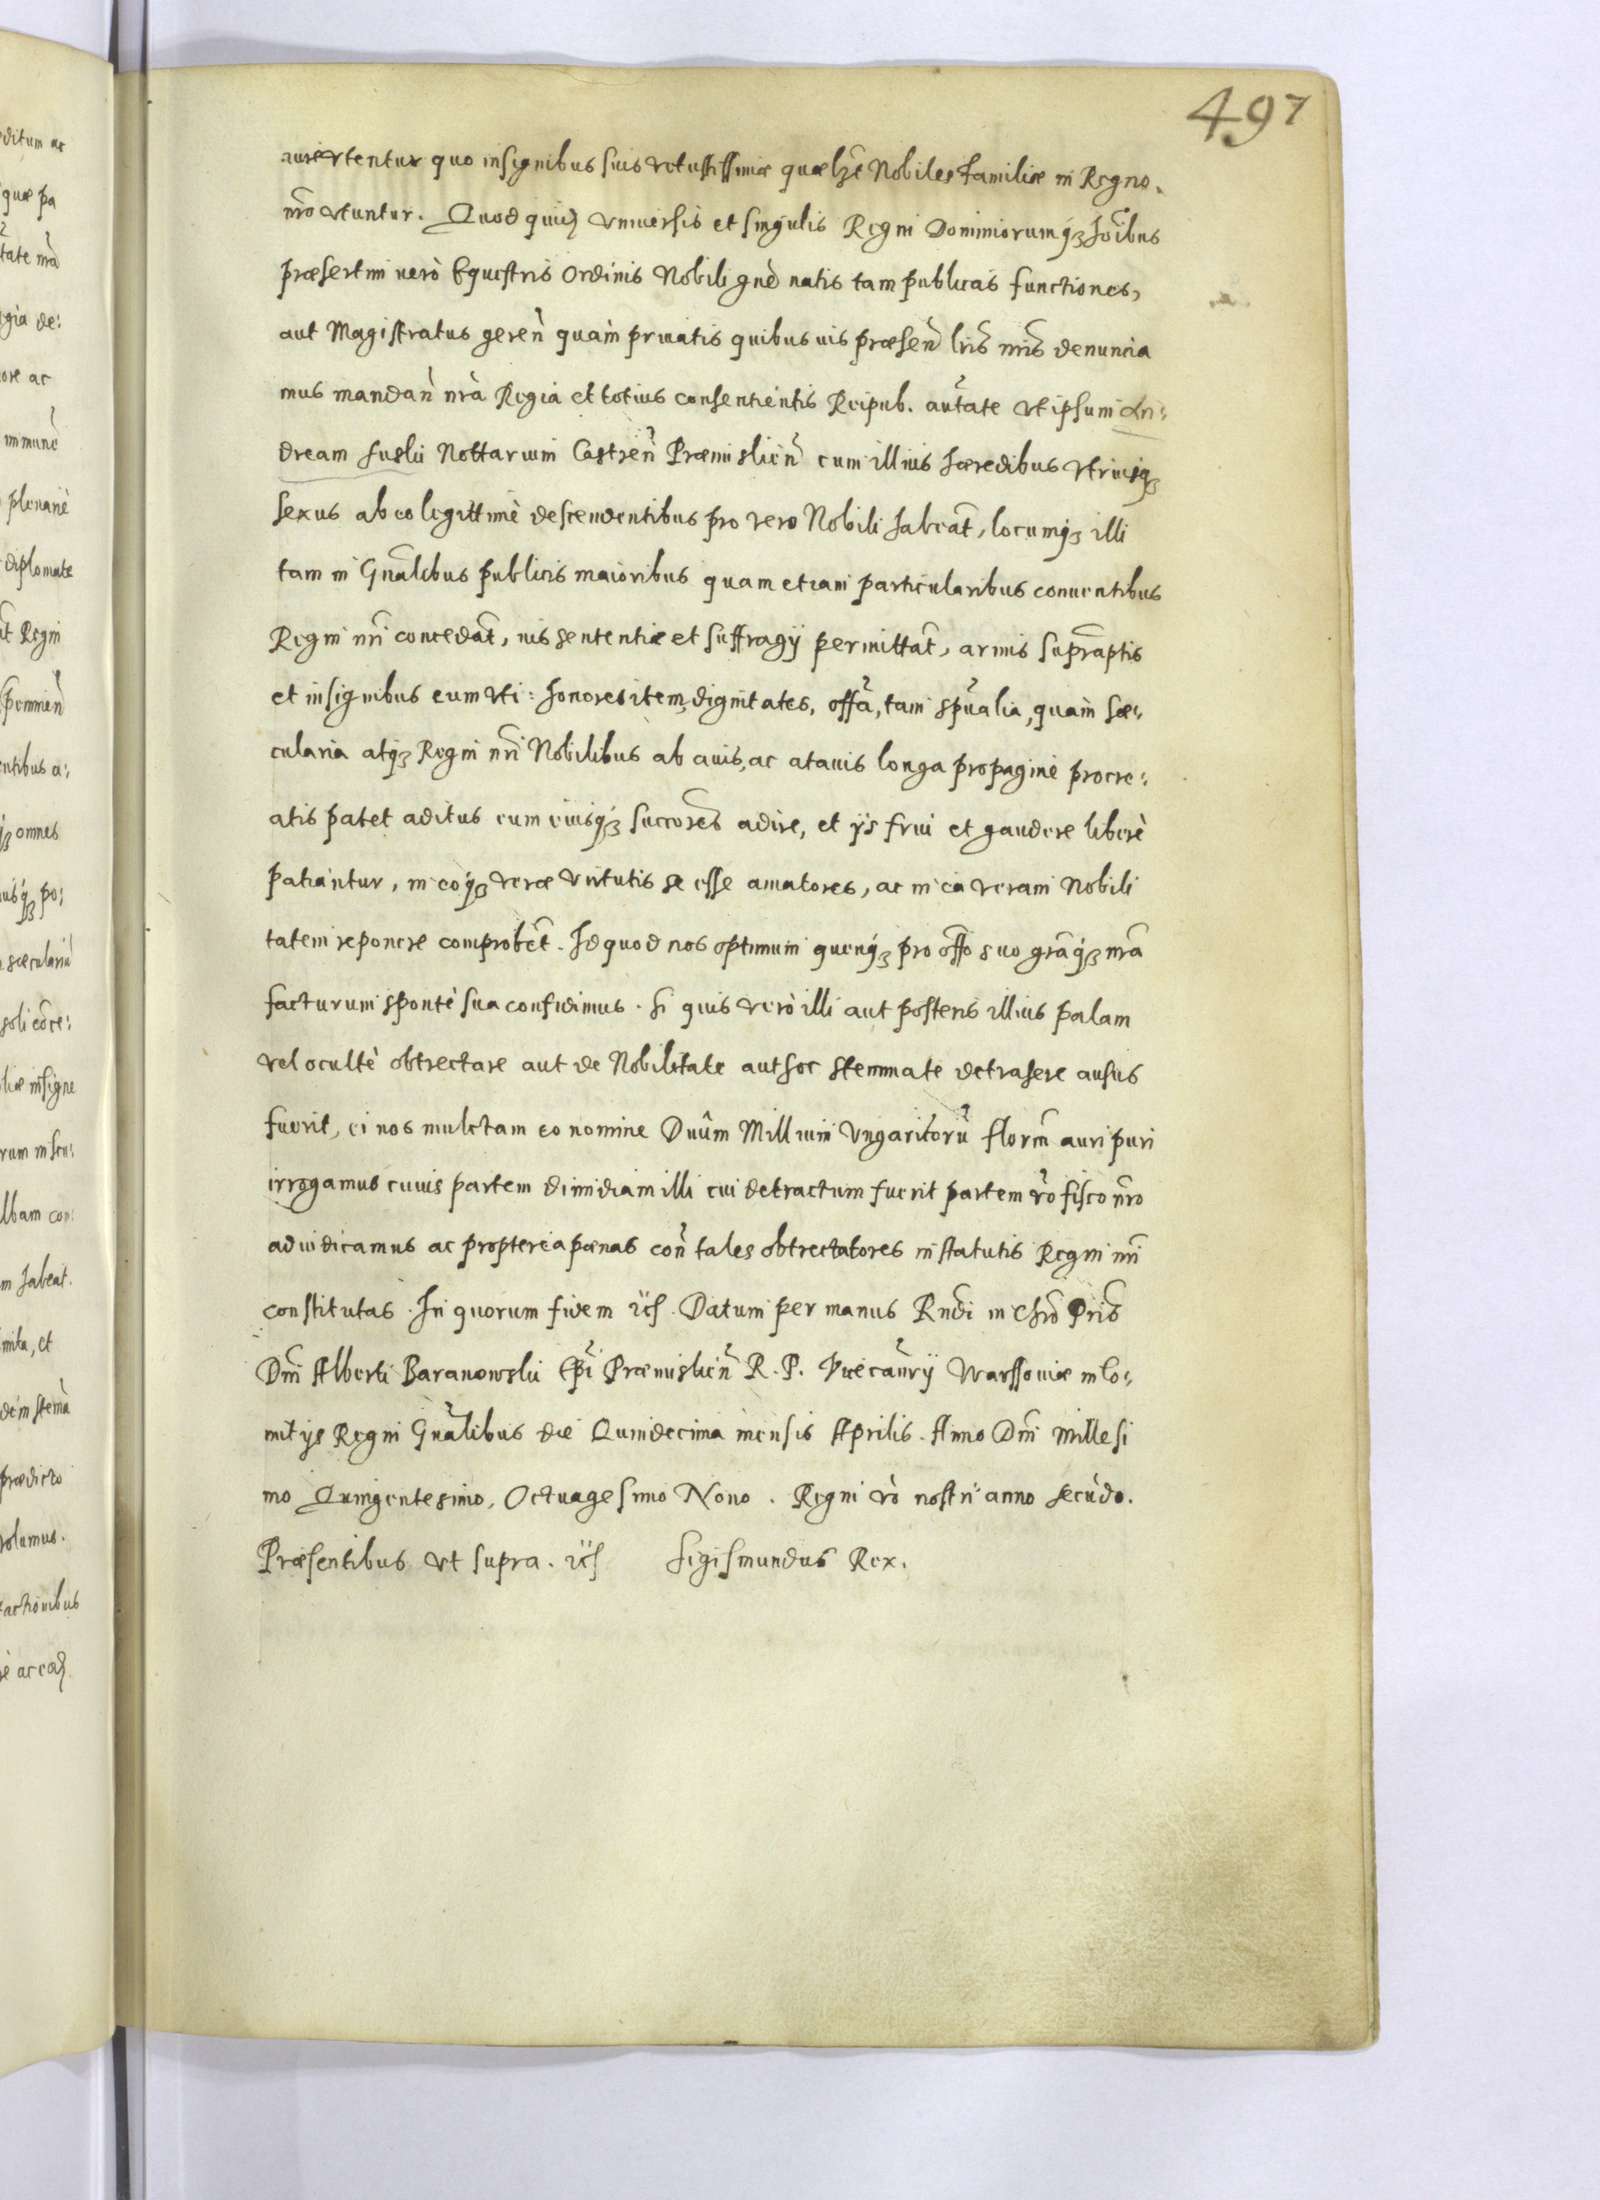 497
quo insignibus suis vetustissimæ quælꝫ Nobiles Familiæ in Regno.
nr̃o vtuntur. Quod quid vniuersis et singulis Regni Dominiorumqꝫ hoĩbus
præsertim uerò Equestris Ordinis Nobili gñe natis tam publicas functiones,
aut Magistratus gereñ quàm priuatis quibusuis præseñ lrĩs nrĩs denuncia
mus mandañ nrã Regia et totius consentientis Reipub. aut̃ate vt ipsum An:
dream Suski Nottarium Castreñ Præmislieñ cum illius hæredibus vtriusqꝫ
sexus ab eo legittimè descendentibus pro vero Nobili habeat̃, locumqꝫ illi
tam in Gnãlibus publicis maioribus quam etiam particularibus conuentibus
Regni nrĩ concedat̃, ius sententiæ et suffragÿ permittat̃, armis supraptis
et insignibus eum vti: honores item, dignitates, offã, tam spũalia, quàm sæ:
cularia atqꝫ Regni nrĩ Nobilibus ab auis, ac atauis longa propagine procre:
atis patet aditus eum eiusqꝫ succores̃ adire, et ÿs frui et gaudere liberè
patiantur, in eoqꝫ veræ virtutis se esse amatores, ac in ea veram Nobili
tatem reponere comprobet̃. Id quod nos optimum quenqꝫ pro offõ suo grãqꝫ nrã
facturum spontè sua confidimus. Si quis verò illi aut posteris illius palam
vel ocultè obtrectare aut de Nobilitate aut hoc stemmate detrahere ausus
fuerit, ei nos mulctam eo nomine Duûm Millium Vngaricorũ florm̃ auri puri
irrogamus cuius partem dimidiam illi cui detractum fuerit partem vrò fisco nr̃o
adiudicamus ac propterea pænas coñ tales obtrectatores in statutis Regni nrĩ
constitutas. In quorum fidem ꝛc̃. Datum per manus Rndĩ in Chrõ Pris̃
Dnĩ Alberti Baranowski Epĩ Præmislieñ R. P. Vicecanr̃ÿ Warssouiæ in Co:
mitÿs Regni Gnãlibus die Quindecima mensis Aprilis. Anno Dnĩ Millesi
mo Quingentesimo, Octuagesimo Nono. Regni vrò nostri anno secũdo.
Præsentibus vt supra. ꝛc̃ Sigismundus Rex.